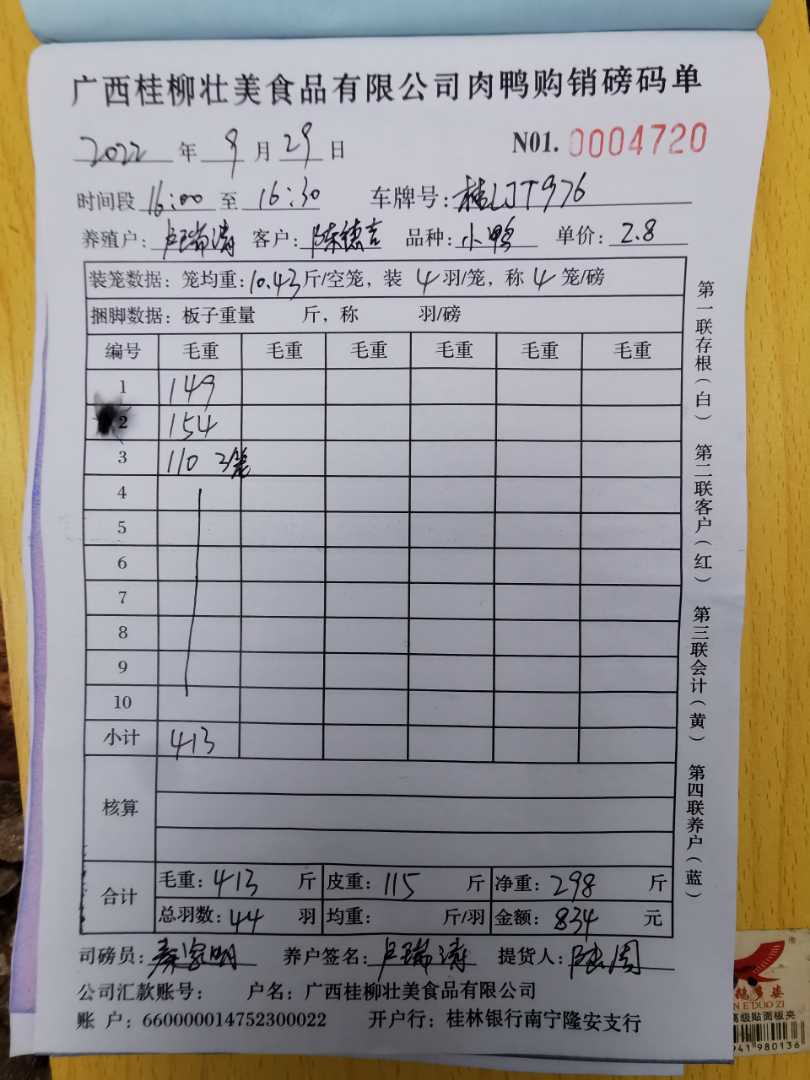 广西桂柳壮美食品有限公司肉鸭购销磅码单
2022 年 9 月 29 日 N01. 0004720
时间段 16:00 至 16:30 车牌号: 桂LJT976
养殖户: 卢瑞涛 客户: 陈德吉 品种: 小鸭 单价: 2.8
装笼数据: 笼均重: 10.43 斤/空笼, 装 4 羽/笼, 称 4 笼/磅
捆脚数据: 板子重量 斤, 称 羽/磅
编号 毛重 毛重 毛重 毛重 毛重 毛重
1 149
2 154
3 110 3笼
4
5
6
7
8
9
10
小计 413
核算
合计 毛重: 413 斤 皮重: 115 斤 净重: 298 斤
总羽数: 44 羽 均重: 斤/羽 金额: 834 元
司磅员: 秦家明 养户签名: 卢瑞涛 提货人:
公司汇款账号: 户名: 广西桂柳壮美食品有限公司
账 户: 660000014752300022 开户行: 桂林银行南宁隆安支行
第一联存根(白) 第二联客户(红) 第三联会计(黄) 第四联养户(蓝)
高级贴面板夹
941 980136